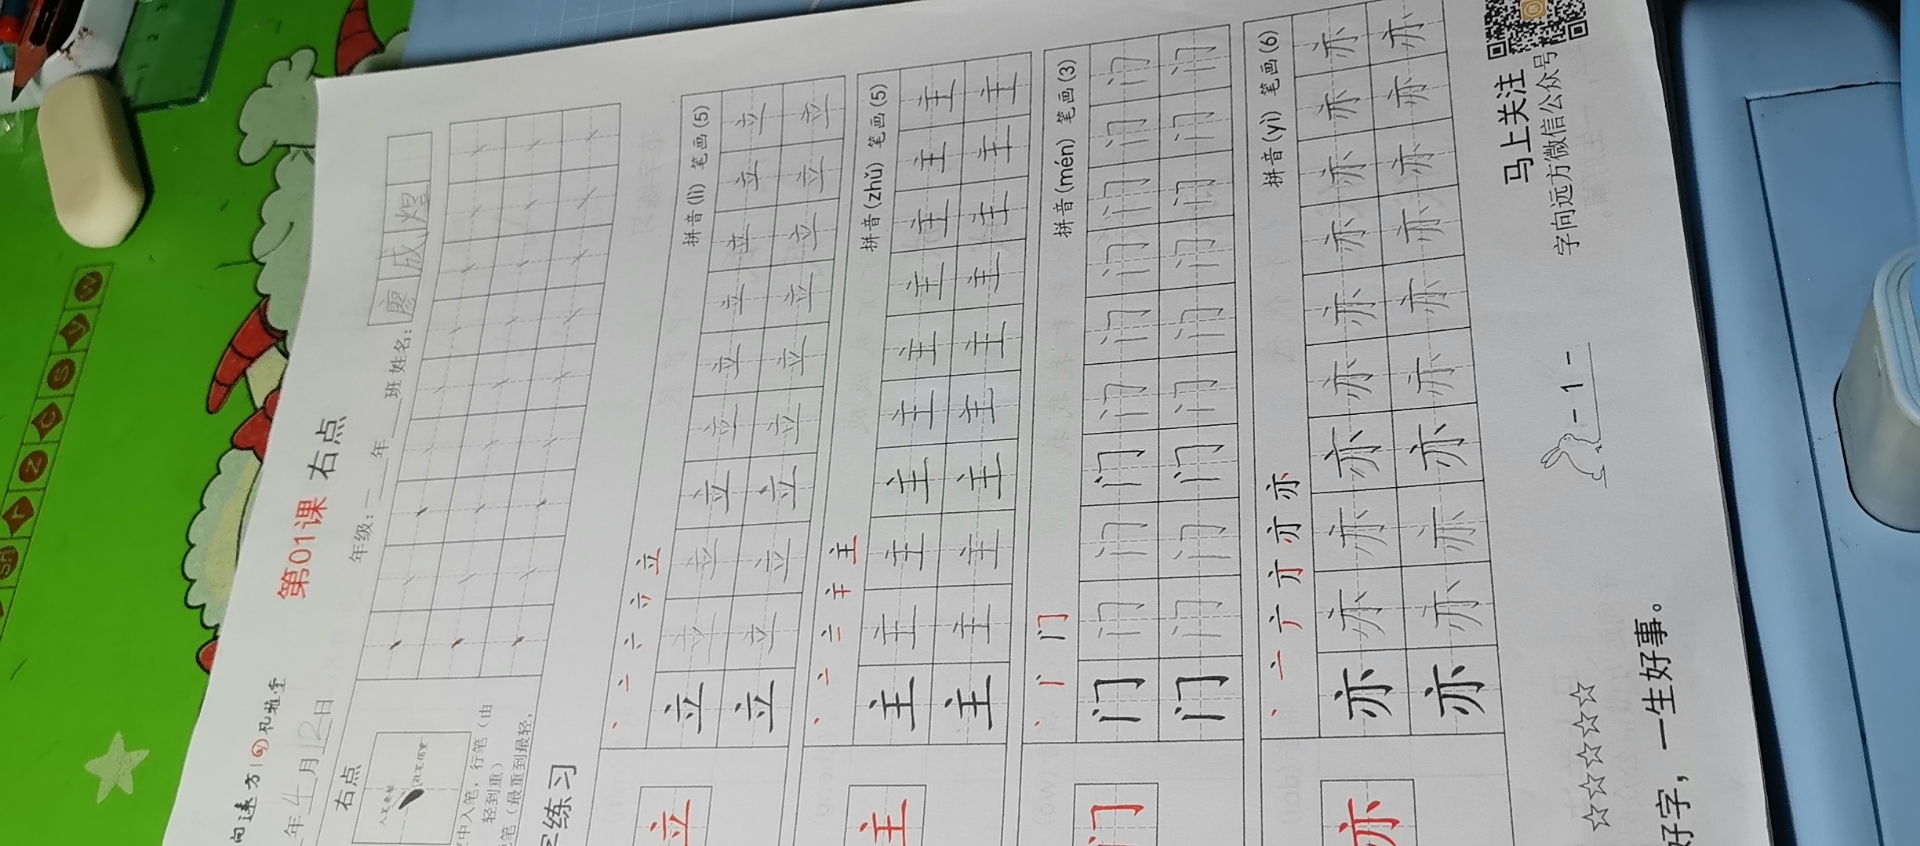 向远方
第01课 右点
年4月12日
年级:一年 班 姓名:廖成煌
右点
中入笔,行笔(由
轻到重)
笔(最重到最轻,
字练习
拼音(lì) 笔画(5)
立
立 立 立 立 立 立 立 立 立 立
立 立 立 立 立 立 立 立 立 立
拼音(zhǔ) 笔画(5)
主
主 主 主 主 主 主 主 主 主 主
主 主 主 主 主 主 主 主 主 主
拼音(mén) 笔画(3)
门
门 门 门 门 门 门 门 门 门 门
门 门 门 门 门 门 门 门 门 门
拼音(yì) 笔画(6)
亦
亦 亦 亦 亦 亦 亦 亦 亦 亦 亦
亦 亦 亦 亦 亦 亦 亦 亦 亦 亦
马上关注
字向远方微信公众号
☆☆☆☆☆☆
- 1 -
好字,一生好事。